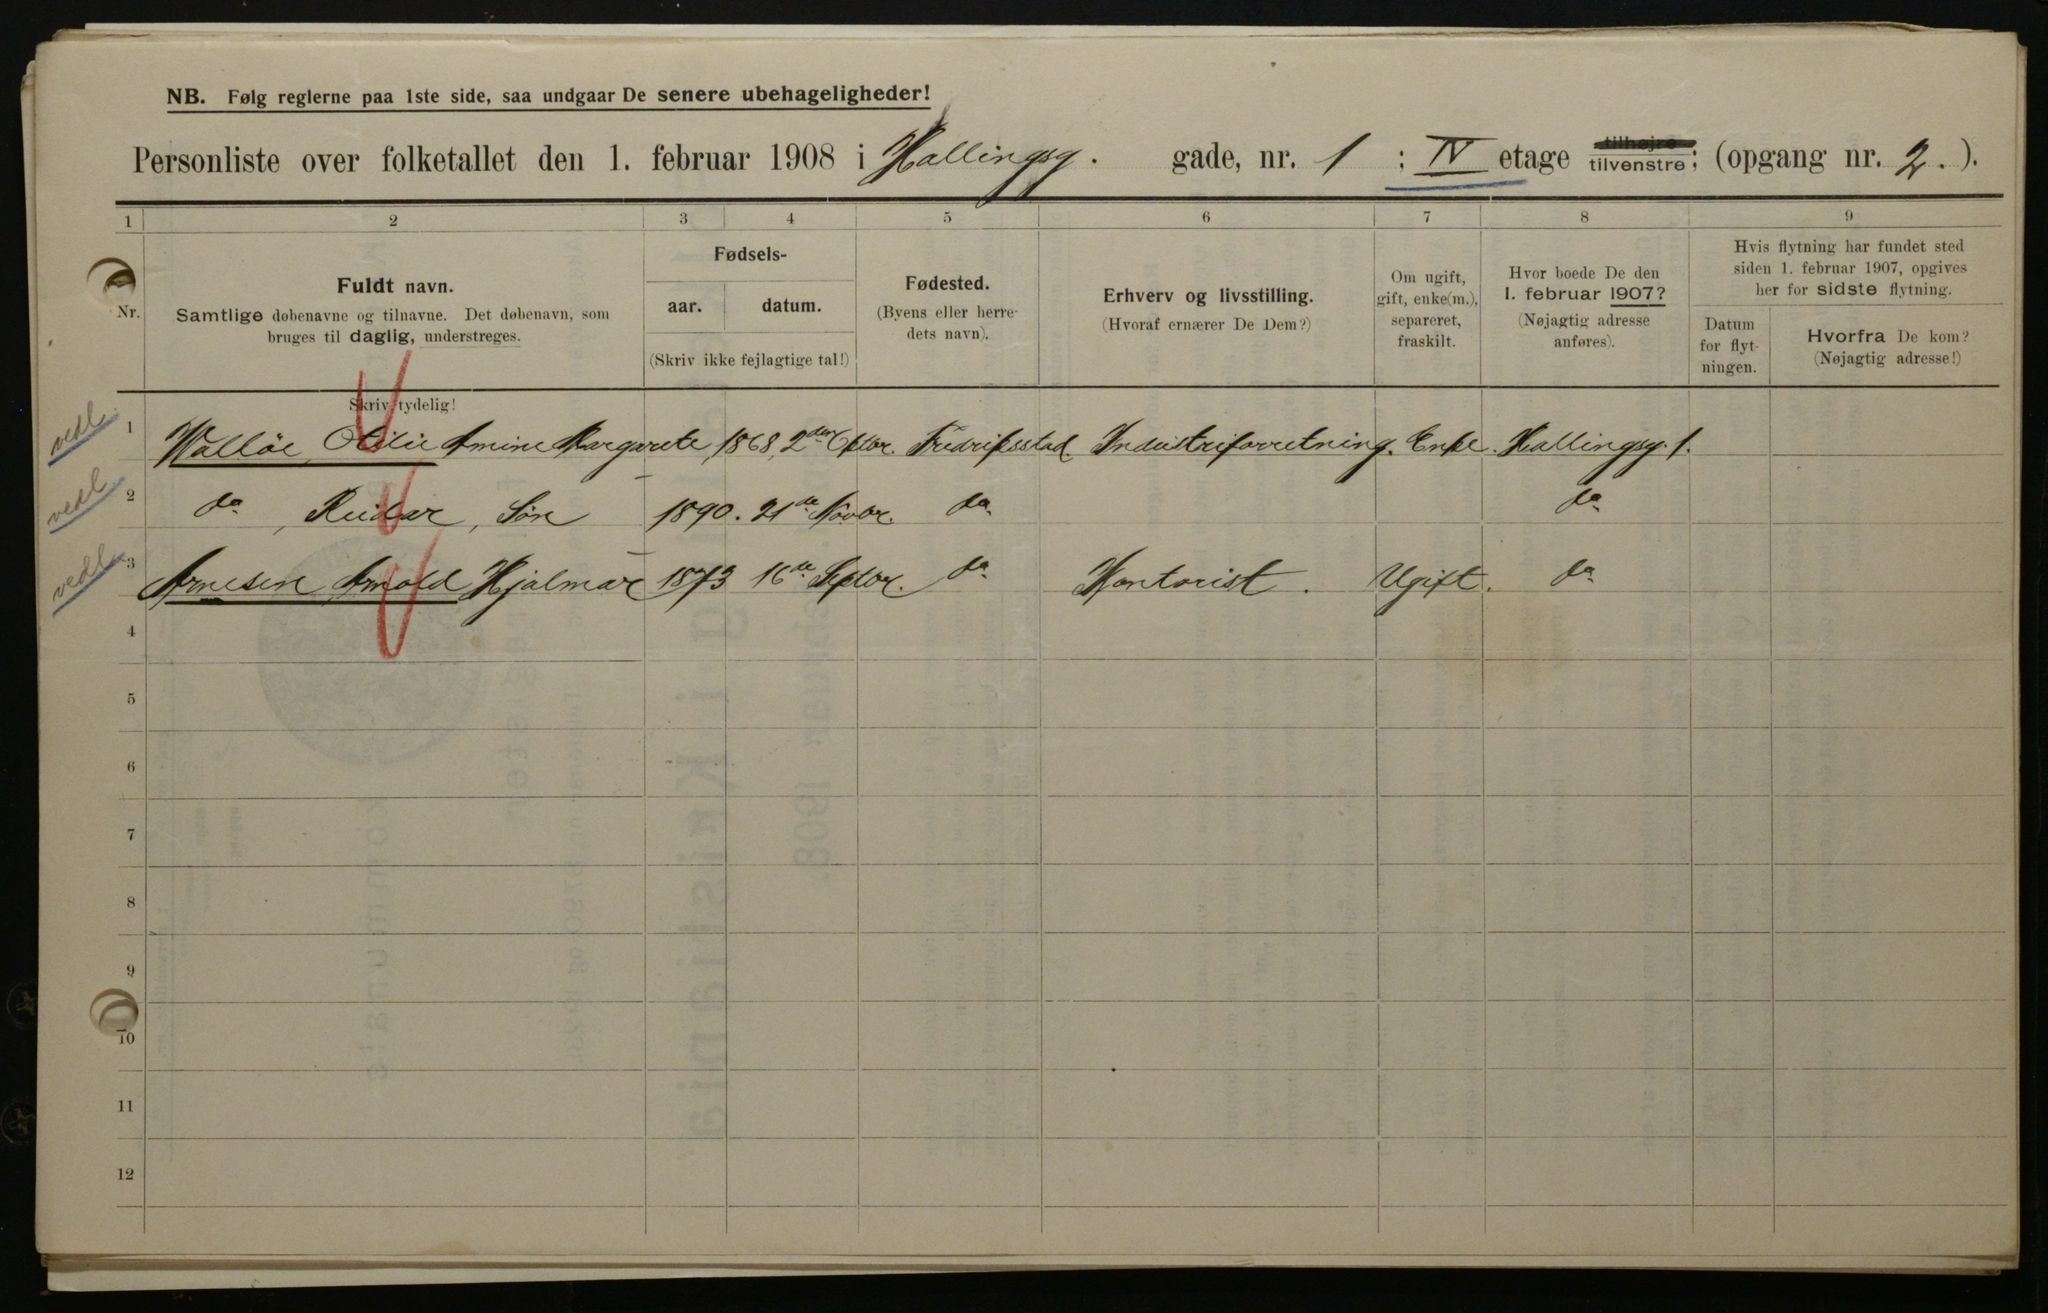 NB. Følg reglerne paa 1ste side, saa undgaar De senere ubehageligheder!
Personliste over folketallet den 1. februar 1908 i Hallingsg. gade, nr. 1 ; IV etage tilhøjre tilvenstre; (opgang nr. 2. ).
1 2 3 4 5 6 7 8 9
Nr.
Fuldt navn.
Samtlige døbenavne og tilnavne. Det døbenavn, som
bruges til daglig, understreges.
Skriv tydelig!
Fødsels-
aar. datum.
(Skriv ikke fejlagtige tal!)
Fødested.
(Byens eller herre-
dets navn).
Erhverv og livsstilling.
(Hvoraf ernærer De Dem?)
Om ugift,
gift, enke(m.),
separeret,
fraskilt.
Hvor boede De den
1. februar 1907?
(Nøjagtig adresse
anføres).
Hvis flytning har fundet sted
siden 1. februar 1907, opgives
her for sidste flytning.
Datum
for flyt-
ningen.
Hvorfra De kom?
(Nøjagtig adresse!)
vedl. 1 Walløe, Otilie Amine Margarete, 1868, 2den Oktbr. Fredriksstad. Industriforretning. Enke. Hallingsg. 1.
vedl. 2 do , Reidar, Søn 1890. 21de Novbr. do do
vedl. 3 Arnesen Arnold Hjalmar 1873 16de Septbr. do Kontorist. Ugift. do
4
5
6
7
8
9
10
11
12